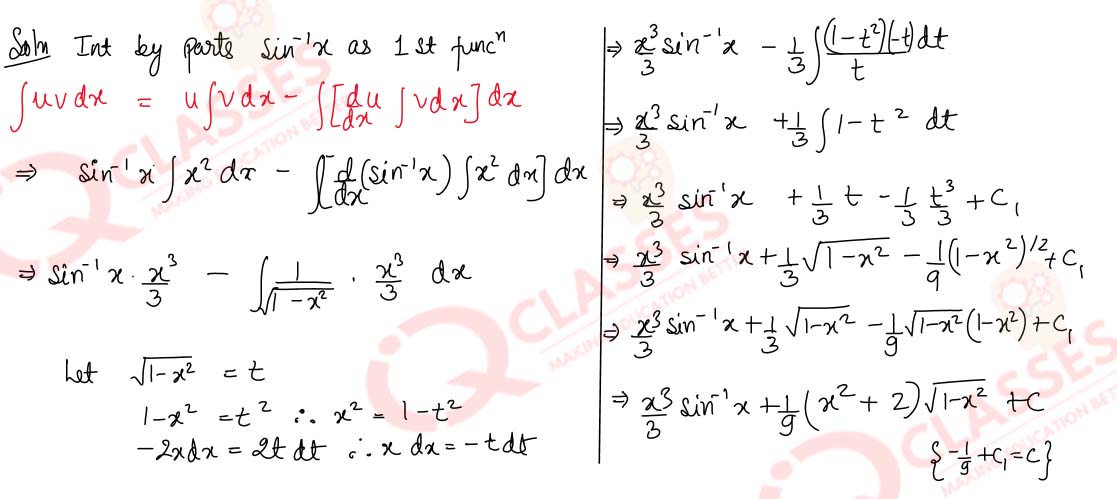 Soln Int by parts sin⁻¹x as 1 st funcⁿ
∫uvdx = u∫vdx - ∫[du/dx ∫vdx]dx
⇒ sin⁻¹x ∫x² dx - ∫[d/dx(sin⁻¹x) ∫x² dx] dx
⇒ sin⁻¹x · x³/3 - ∫ 1/√(1-x²) · x³/3 dx
Let √(1-x²) = t
1-x² = t² ∴ x² = 1-t²
-2xdx = 2t dt ∴ x dx = -t dt
⇒ x³/3 sin⁻¹x - 1/3 ∫ (1-t²)(-t)dt/t
⇒ x³/3 sin⁻¹x + 1/3 ∫ 1-t² dt
⇒ x³/3 sin⁻¹x + 1/3 t - 1/3 t³/3 + C₁
⇒ x³/3 sin⁻¹x + 1/3 √(1-x²) - 1/9 (1-x²)^1/2 + C₁
⇒ x³/3 sin⁻¹x + 1/3 √(1-x²) - 1/9 √(1-x²) (1-x²) + C₁
⇒ x³/3 sin⁻¹x + 1/9 (x² + 2) √(1-x²) + C
{-1/9 + C₁ = C}
CLASSES
MAKING EDUCATION BETTER